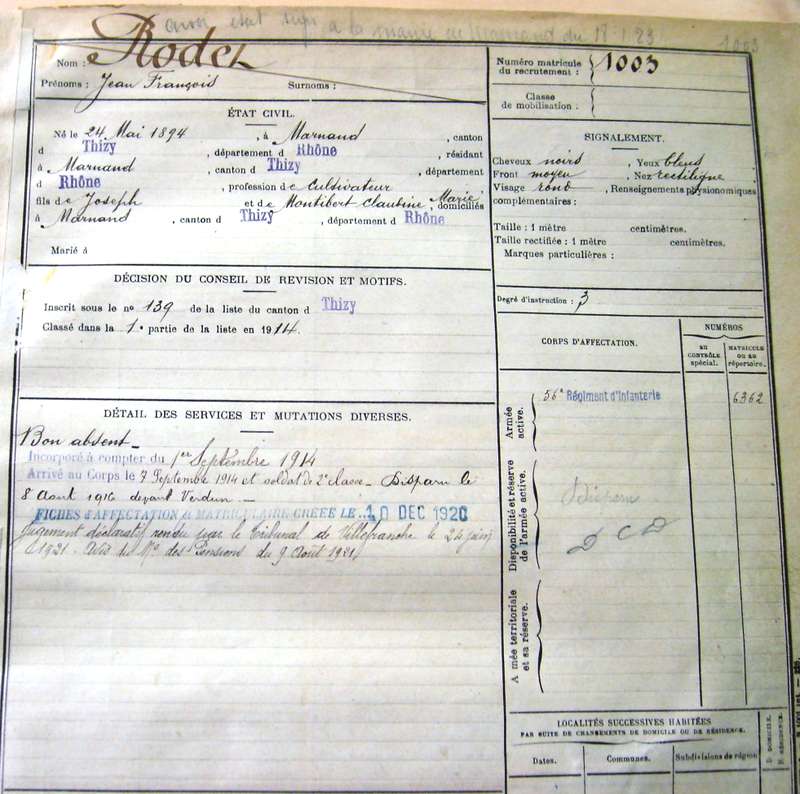 état à la mairie de du 18.1.23
1003
Nom : Rodet
Prénoms : Jean François Surnoms :
ÉTAT CIVIL.
Né le 24 Mai 1894, à Marnand, canton
d Thizy, département d Rhône, résidant
à Marnand, canton d Thizy, département
d Rhône, profession de cultivateur
fils de Joseph et de Montibert Claudine Marie, domiciliés
à Marnand, canton d Thizy, département d Rhône
Marié à
DÉCISION DU CONSEIL DE REVISION ET MOTIFS.
Inscrit sous le no 139 de la liste du canton d Thizy
Classé dans la 1e partie de la liste en 1914.
DÉTAIL DES SERVICES ET MUTATIONS DIVERSES.
Bon absent
Incorporé à compter du 1er Septembre 1914
Arrivé au Corps le 7 Septembre 1914 et soldat de 2e classe - Disparu le
8 Aout 1916 devant Verdun. -
FICHES D'AFFECTATION & MATRICULAIRE CRÉÉE LE 10 DEC 1920
Jugement déclaratif rendu par le Tribunal de Villefranche le 24 juin
1921. Avis du Mre des Pensions du 9 Aout 1921.
Numéro matricule du recrutement : 1003
Classe de mobilisation :
SIGNALEMENT.
Cheveux noirs, Yeux bleus
Front moyen, Nez rectiligne
Visage rond, Renseignements physionomiques
complémentaires :
Taille : 1 mètre centimètres.
Taille rectifiée : 1 mètre centimètres.
Marques particulières :
Degré d'instruction : 3
CORPS D'AFFECTATION.
NUMÉROS
au CONTRÔLE spécial.
MATRICULE ou au répertoire.
Armée active.
56e Régiment d'Infanterie 6362
Disponibilité et réserve de l'armée active.
Disparu
DCD
A mée territoriale et sa réserve.
LOCALITÉS SUCCESSIVES HABITÉES
PAR SUITE DE CHANGEMENTS DE DOMICILE OU DE RÉSIDENCE.
Dates. Communes. Subdivisions de région
D. DOMICILE.
R. RÉSIDENCE.